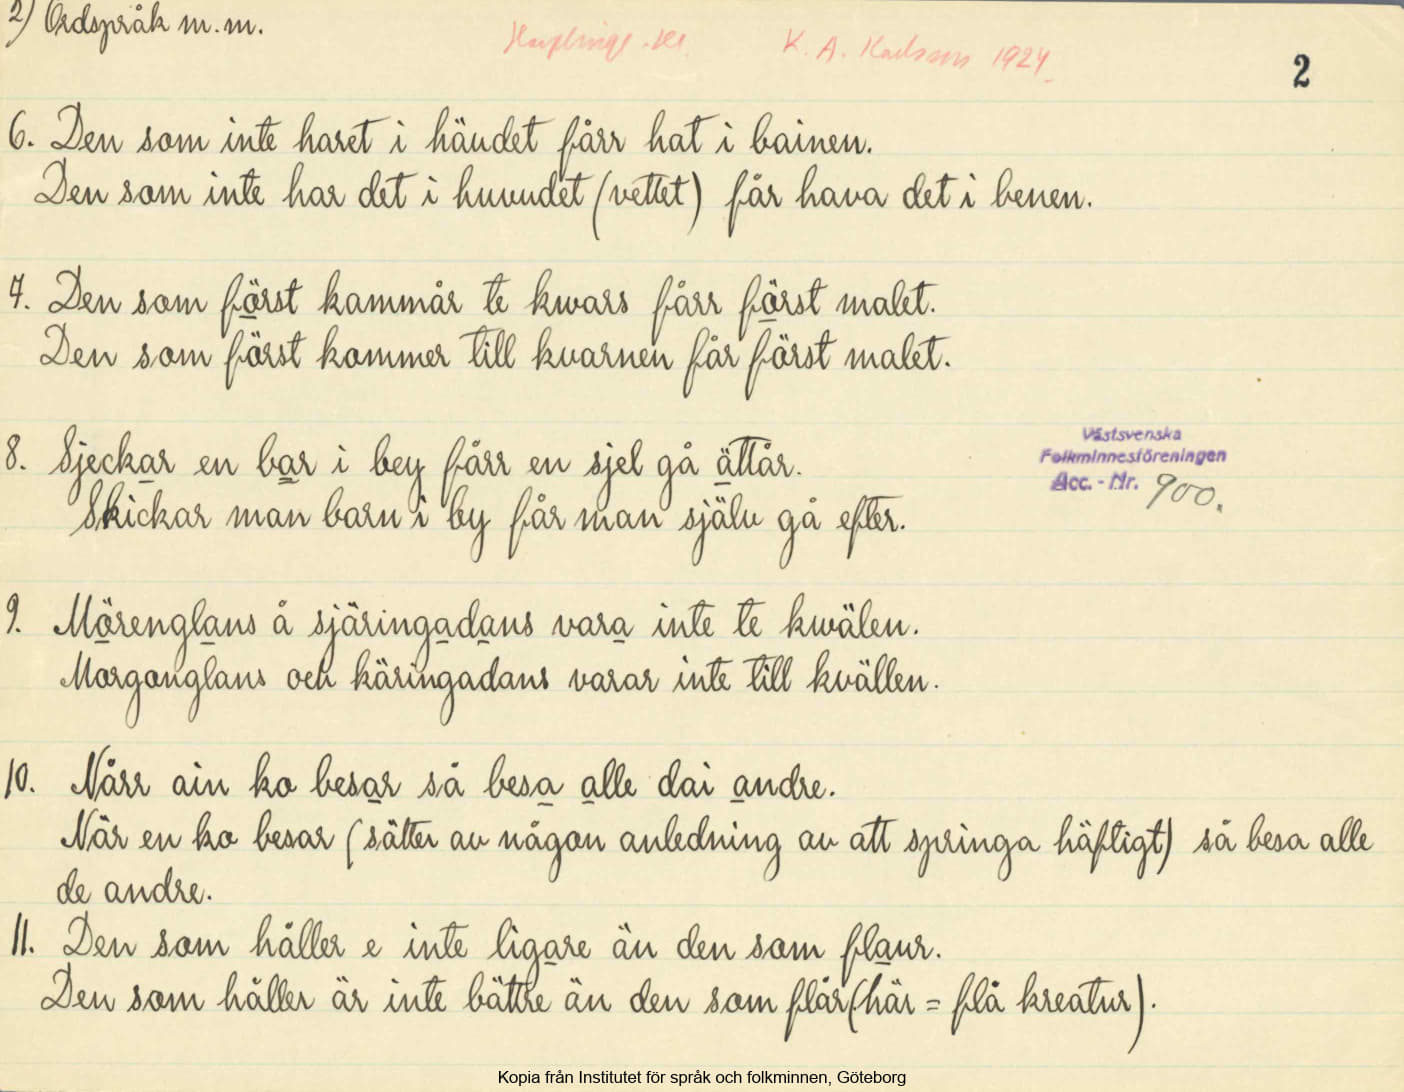 2) Ordspråk m.m.
K. A. Karlsson 1924
2
6. Den som inte haret i häudet fårr hat i bainen.
Den som inte har det i huvudet (vettet) får hava det i benen.
7. Den som först kammår te kwars fårr först malet.
Den som först kommer till kvarnen får först malet.
8. Sjeckar en bar i bey fårr en sjel gå ättår.
Skickar man barn i by får man själv gå efter.
Västsvenska
Folkminnesföreningen
Acc.-Nr. 900.
9. Mörenglans å sjäringadans vara inte te kwälen.
Morgonglans och käringadans varar inte till kvällen.
10. Nårr ain ko besar så besa alle dai andre.
När en ko besar (sätter av någon anledning av att springa häftigt) så besa alle
de andre.
11. Den som håller e inte ligare än den som flaur.
Den som håller är inte bättre än den som flår (här = flå kreatur).
Kopia från Institutet för språk och folkminnen, Göteborg